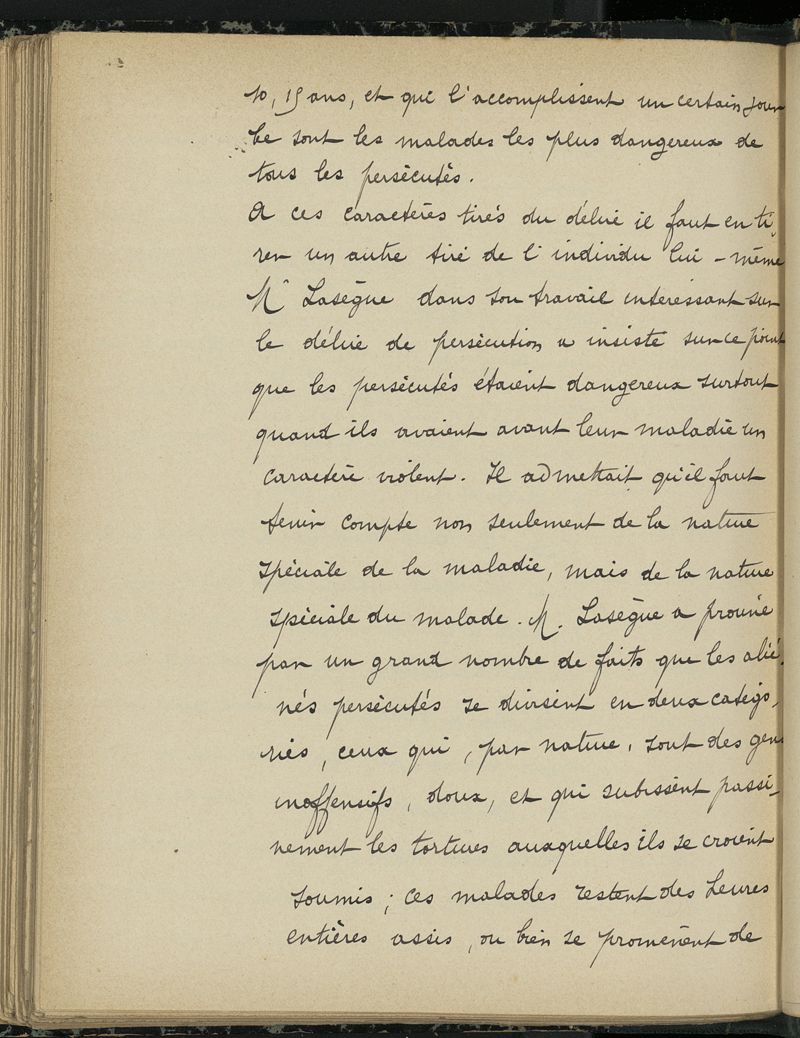 10, 15 ans, et qui l'accomplissent un certain jour
ce sont les malades les plus dangereux de
tous les persécutés.
A ces caractères tirés du délire il faut en ti-
rer un autre tiré de l'individu lui-même
Mr Lasègue dans son travail intéressant sur
le délire de persécution a insisté sur ce point
que les persécutés étaient dangereux surtout
quand ils avaient avant leur maladie un
caractère violent. Il admettait qu'il faut
tenir compte non seulement de la nature
spéciale de la maladie, mais de la nature
spéciale du malade. M. Lasègue a prouvé
par un grand nombre de faits que les alié-
nés persécutés se divisent en deux catégo-
ries, ceux qui, par nature, sont des gens
inoffensifs, doux, et qui subissent passi-
vement les tortures auxquelles ils se croient
soumis; ces malades restent des heures
entières assis, ou bien se promènent de